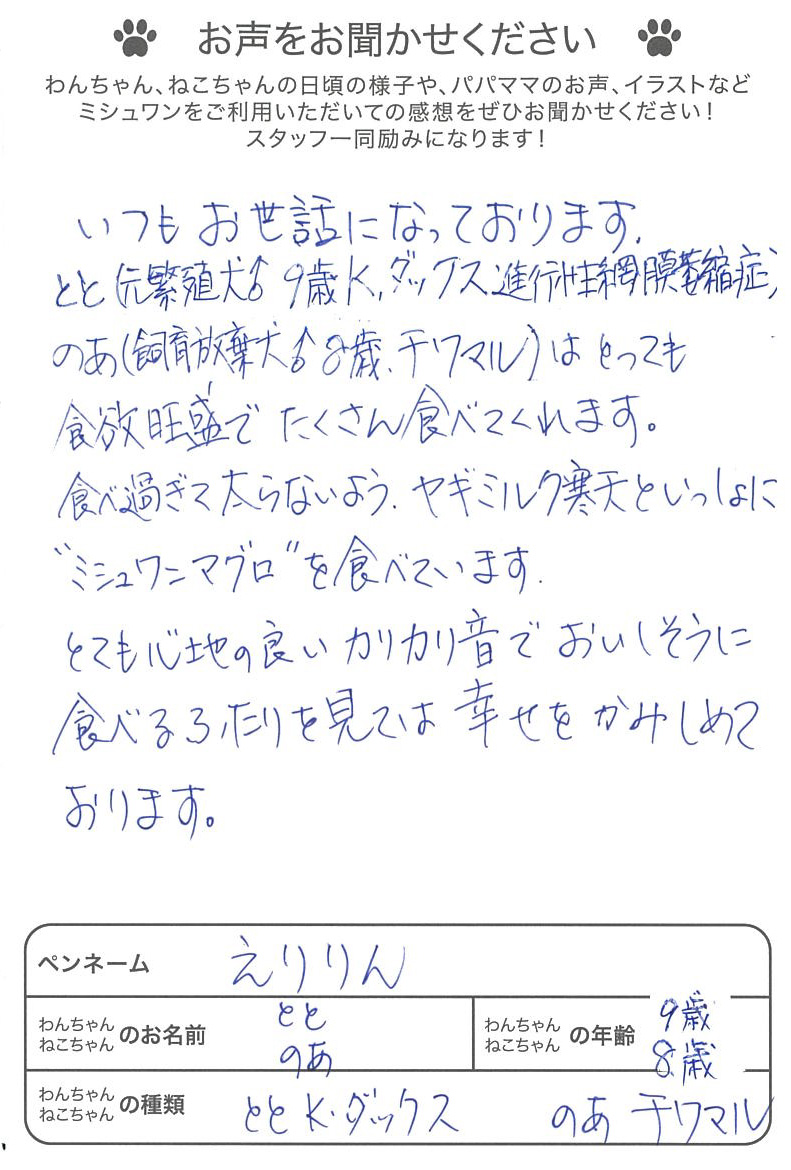 お声をお聞かせください
わんちゃん、ねこちゃんの日頃の様子や、パパママのお声、イラストなど
ミシュワンをご利用いただいての感想をぜひお聞かせください！
スタッフ一同励みになります！
いつもお世話になっております.
とと(元繁殖犬♂9歳K.ダックス.進行性網膜萎縮症)
のあ(飼育放棄犬♂8歳.チワマル)はとっても
食欲旺盛でたくさん食べてくれます。
食べ過ぎて太らないよう.ヤギミルク寒天といっしょに
"ミシュワンマグロ"を食べています.
とても心地の良いカリカリ音でおいしそうに
食べるふたりを見ては幸せをかみしめて
おります。
ペンネーム えりりん
わんちゃん ねこちゃん のお名前 とと のあ
わんちゃん ねこちゃん の年齢 9歳 8歳
わんちゃん ねこちゃん の種類 とと K・ダックス のあ チワマル